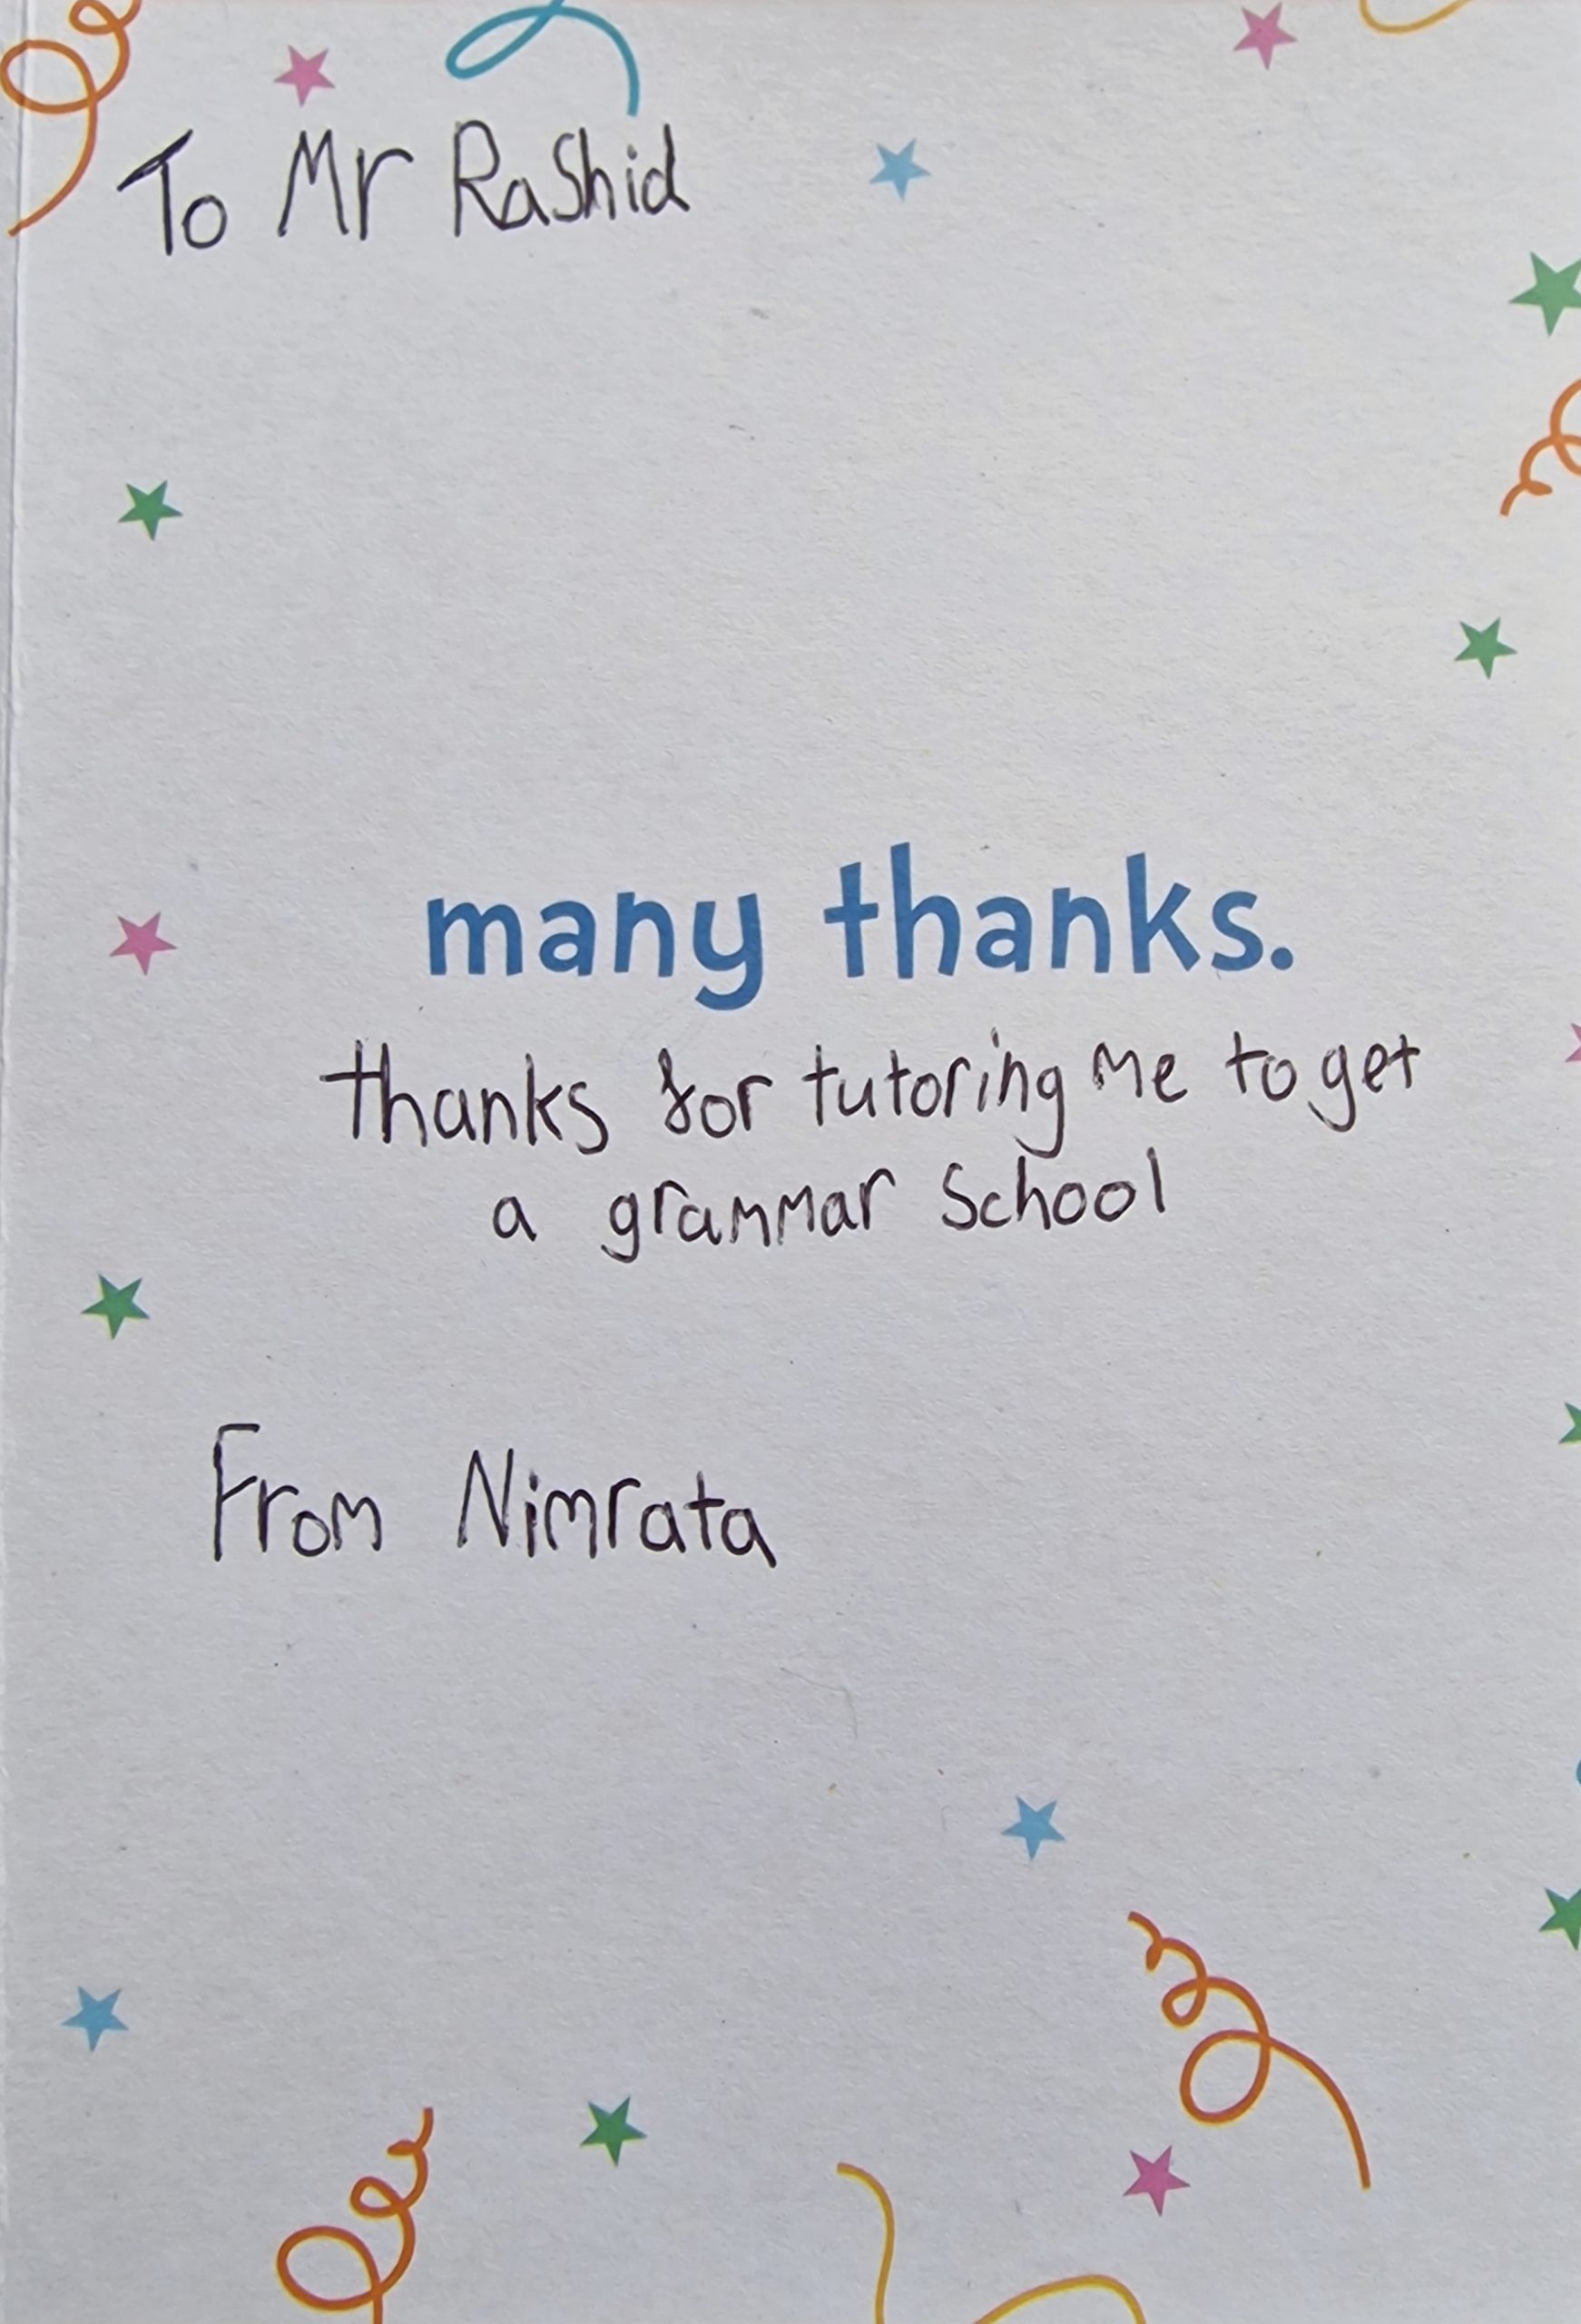 To Mr Rashid
many thanks.
thanks for tutoring me to get
a grammar School
From Nimrata